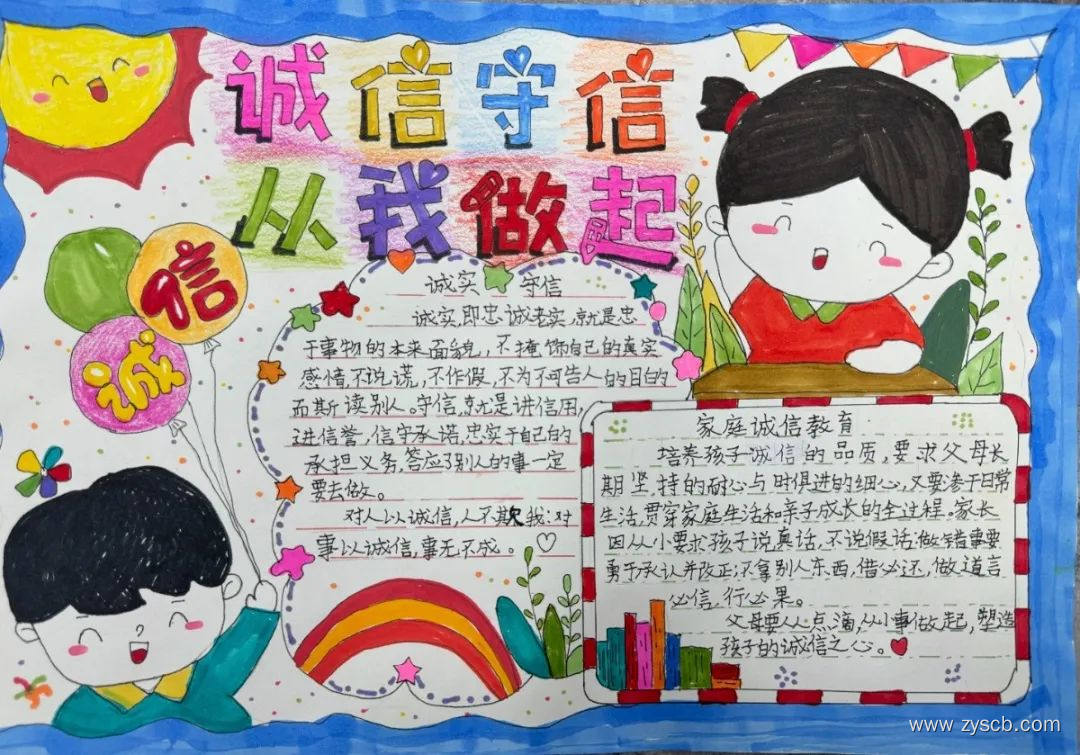 诚信守信
从我做起
信
诚
诚实 守信
诚实,即忠诚老实,就是忠
于事物的本来面貌,不掩饰自己的真实
感情,不说谎,不作假,不为不可告人的目的
而斯读别人。守信,就是讲信用,
进信誉,信守承诺,忠实于自己的
承担义务,答应了别人的事一定
要去做。
对人以诚信,人不欺我:对
事以诚信,事无不成。
家庭诚信教育
培养孩子诚信的品质,要求父母长
期坚持的耐心与时俱进的细心,又要渗于日常
生活,贯穿家庭生活和亲子成长的全过程。家长
因从小要求孩子说真话,不说假话做错事要
勇于承认并改正;不拿别人东西,借必还,做道言
必信,行必果。
父母要从点滴,从小事做起,塑造
孩子的诚信之心。
www.zyscb.com